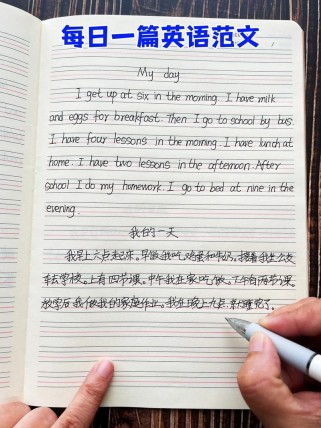 每日一篇英语范文
My day
I get up at six in the morning. I have milk
and eggs for breakfast. Then I go to school by bus.
I have four lessons in the morning. I have lunch at
home. I have two lessons in the afternoon. After
school I do my homework. I go to bed at nine in the
evening.
我的一天
我早上六点起床。早饭我吃鸡蛋和牛奶,接着我坐公交
车去学校。上有四节课。中午我在家吃饭。下午有两节课。
放学后我做我的家庭作业。我在晚上九点